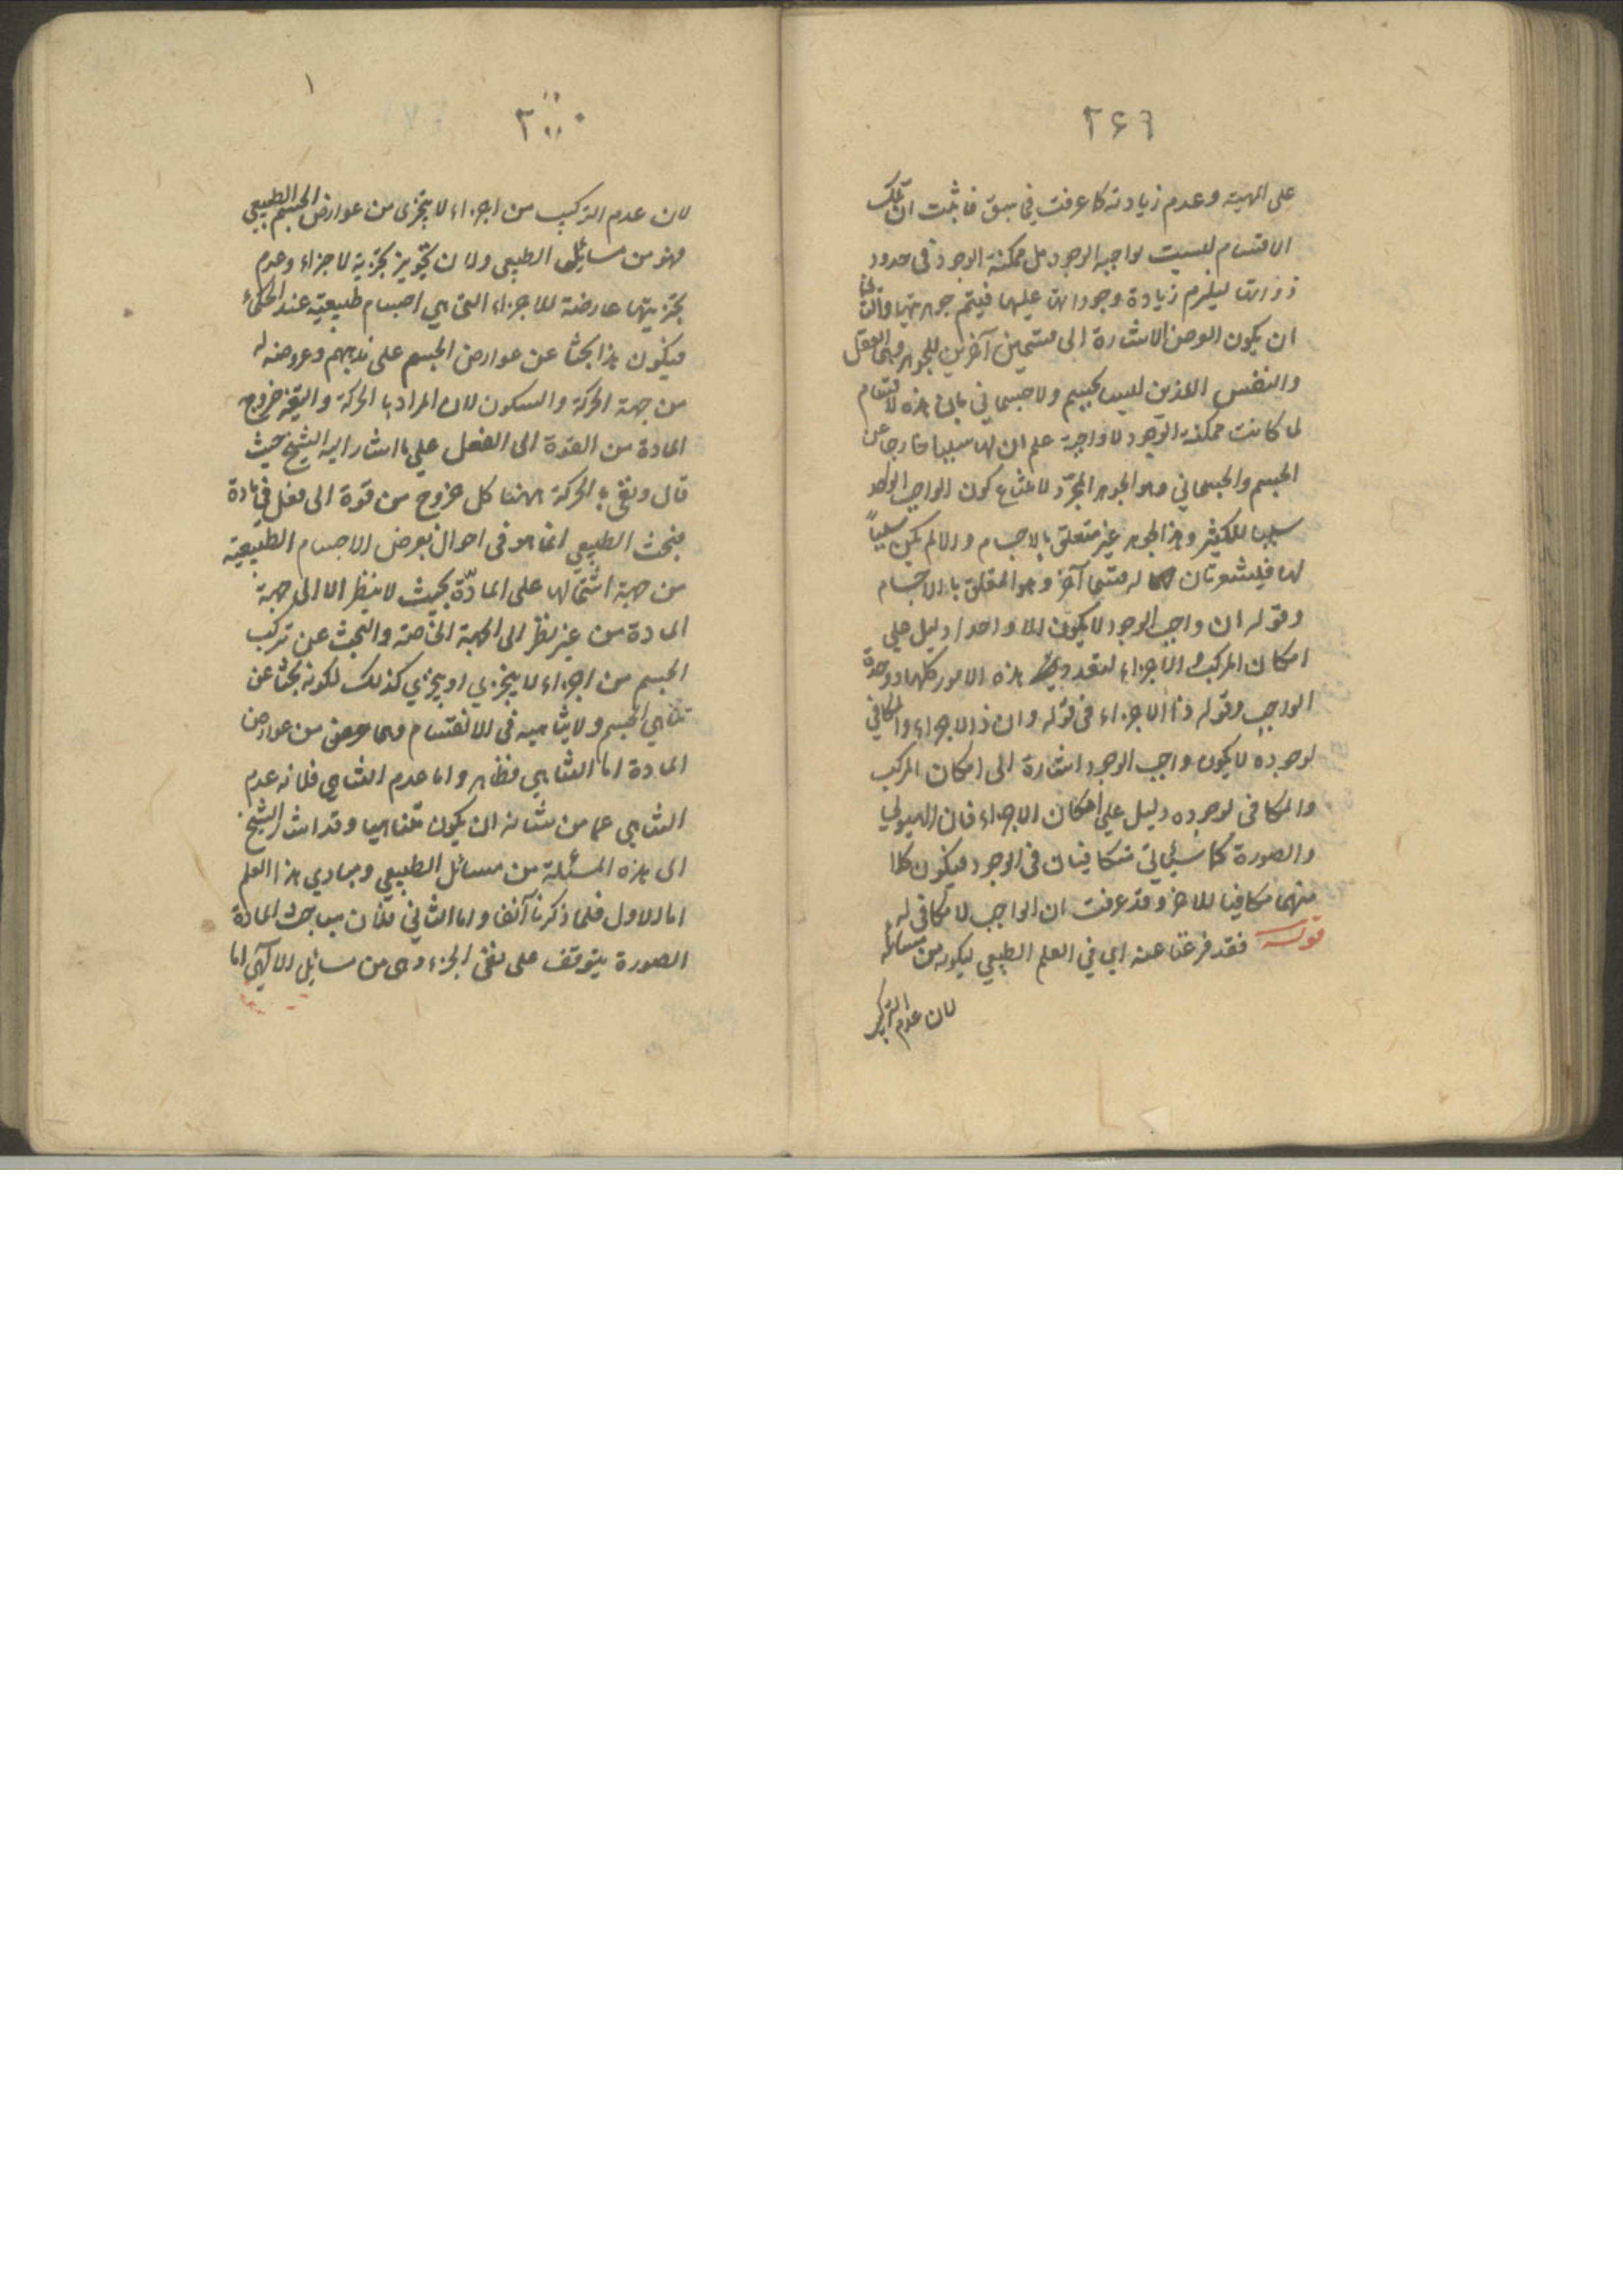 ٢٤٦
على المهية وعدم زيادته كما عرفت فيما سبق فاثبت ان تلك
الاقسام ليست بواجبة الوجود بل ممكنة الوجود في حدود
ذواتها ليلزم زيادة وجوداتها عليها فيتم جوهريتها
ان يكون الغرض الاشارة الى قسمين آخرين للجوهر وهما العقل
والنفس اللذين ليسا بجسم ولا جسماني بان هذه الاقسام
لما كانت ممكنة الوجود لا واجبة علم ان لها سببا خارجا عن
الجسم والجسماني وهو الجوهر المجرد لامتناع كون الواجب الواحد
سببا للكثير وهذا الجوهر غير متعلق بالاجسام والا لم يكن سببا
لها فيشعر بان له قسما آخر وهو المتعلق بالاجسام
وقوله ان واجب الوجود لا يكون الا واحدا دليل على
امكان المركب الاجزاء لتعدد هذه الامور كلها ووحدة
الواجب وقوله ذا الاجزاء في قوله وان ذا الاجزاء والمكافي
لوجوده لا يكون واجب الوجود اشارة الى امكان المركب
والمكافي لوجوده دليل على امكان الاجزاء فان الهيولي
والصورة كما سيأتي متكافيان في الوجود فيكون كلا
منهما مكافيا للاخر وقد عرفت ان الواجب لا مكافي له
قوله فقد فرغنا عنه اي في العلم الطبيعي ليكونه من مسائله
لان عدم التركيب
٣٠٠
١
لان عدم التركيب من اجزاء لا يتجزى من عوارض الجسم الطبيعي
فهو من مسائل الطبيعي ولان تجويز تجزية الاجزاء وعدم
تجزيتها عارضة للاجزاء التي هي اجسام طبيعية عند الحكماء
فيكون هذا بحثا عن عوارض الجسم على مذهبهم وعروضه له
من جهة الحركة والسكون لان المراد بالحركة والتغير خروج
المادة من القوة الى الفعل على ما اشار اليه الشيخ حيث
قال ونعني بالحركة ههنا كل خروج من قوة الى فعل في مادة
فبحث الطبيعي انما هو في احوال تعرض الاجسام الطبيعية
من جهة اشتمالها على المادّة بحيث لا ينظر الا الى جهة
المادة من غير نظر الى الجهة الخاصة والبحث عن تركب
الجسم من اجزاء لا يتجزي او يتجزي كذلك لكونه بحثا عن
تناهي الجسم ولا تناهيه في الانقسام وهما من عوارض
المادة اما التناهي فظاهر واما عدم التناهي فلانه عدم
التناهي عما من شانه ان يكون متناهيا وقد اشار الشيخ
الى هذه المسئلة من مسائل الطبيعي ومبادي هذا العلم
اما الاول فلما ذكرنا آنفا واما الثاني فلان مباحث المادة
الصورة يتوقف على نفي الجزء وهي من مسائل الالهي اما